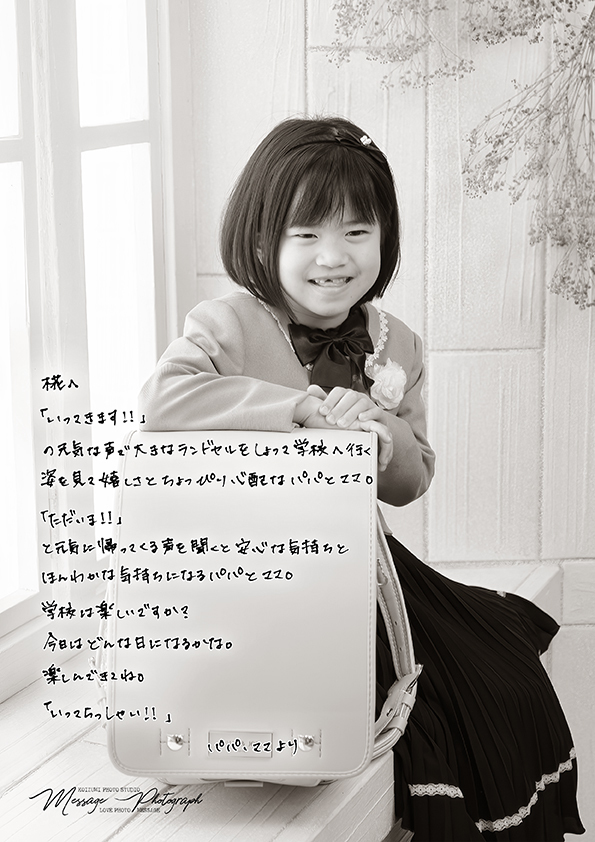 椛へ
「いってきます!!」
の元気な声で大きなランドセルをしょって学校へ行く
姿を見て嬉しさとちょっぴり心配なパパとママ。
「ただいま!!」
と元気に帰ってくる声を聞くと安心な気持ちと
ほんわかな気持ちになるパパとママ。
学校は楽しいですか?
今日はどんな日になるかな。
楽しんできてね。
「いってらっしゃい!!」
パパ、ママより
KOIZUMI PHOTO STUDIO
Message Photograph
LOVE PHOTO MESSAGE